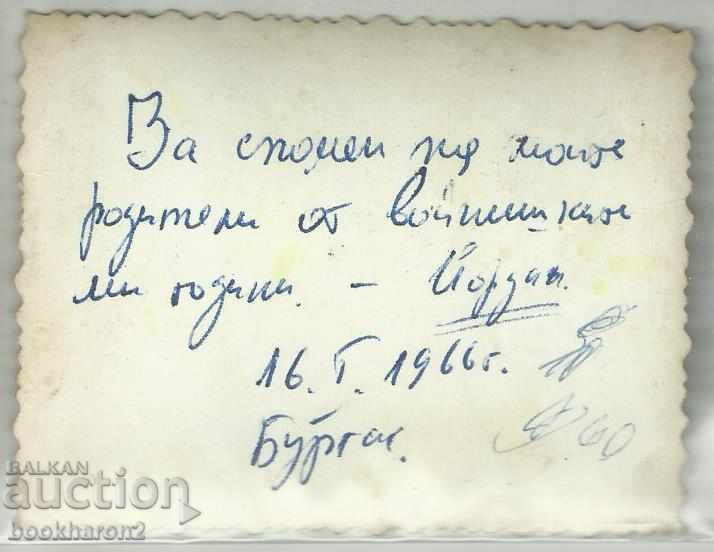 За спомен на моите
родители от войнишките
ми години. - Йордан.
16. I. 1966г.
Бургас.
60
BALKAN
auction
bookharon2